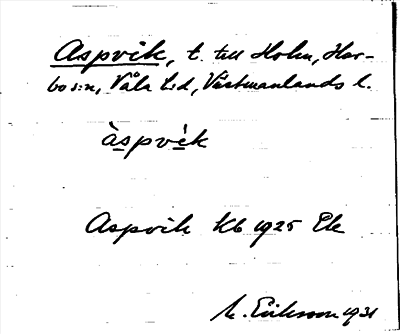 Aspvik, t. till Holm, Har-
bo s:n, Våla h:d, Västmanlands l.
àspvèk
Aspvik Kb 1925 Ek
M. Eriksson 1931